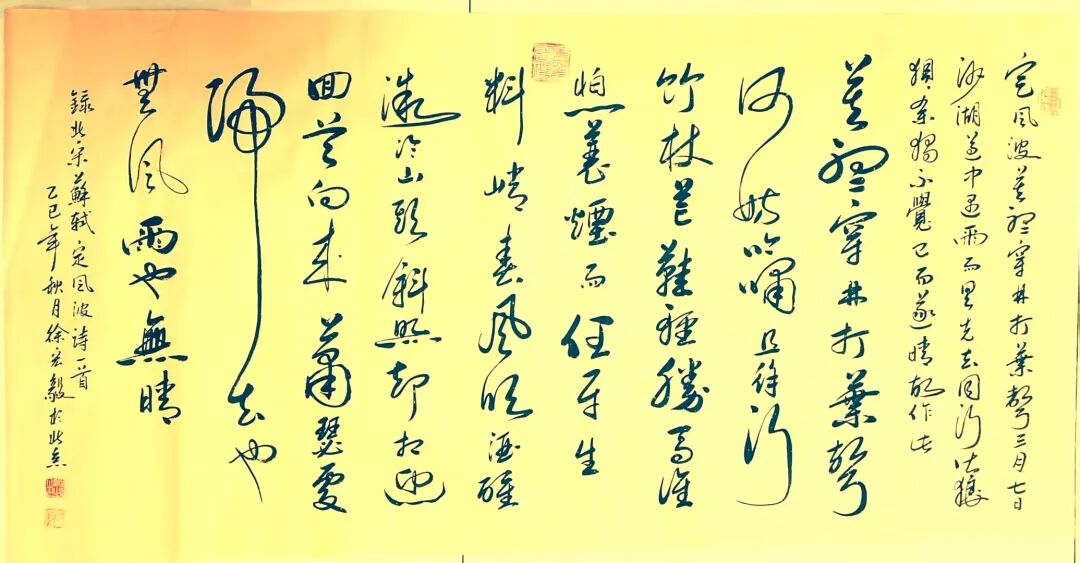 定風波莫聽穿林打葉聲三月七日
沙湖道中遇雨雨具先去同行皆狼
狽余獨不覺已而遂晴故作此
莫聽穿林打葉聲
何妨吟嘯且徐行
竹杖芒鞋輕勝馬誰
怕一蓑煙雨任平生
料峭春風吹酒醒
微冷山頭斜照卻相迎
回首向來蕭瑟處
歸去也
無風雨也無晴
錄北宋蘇軾定風波詩一首
乙巳年秋月徐宏毅於北京